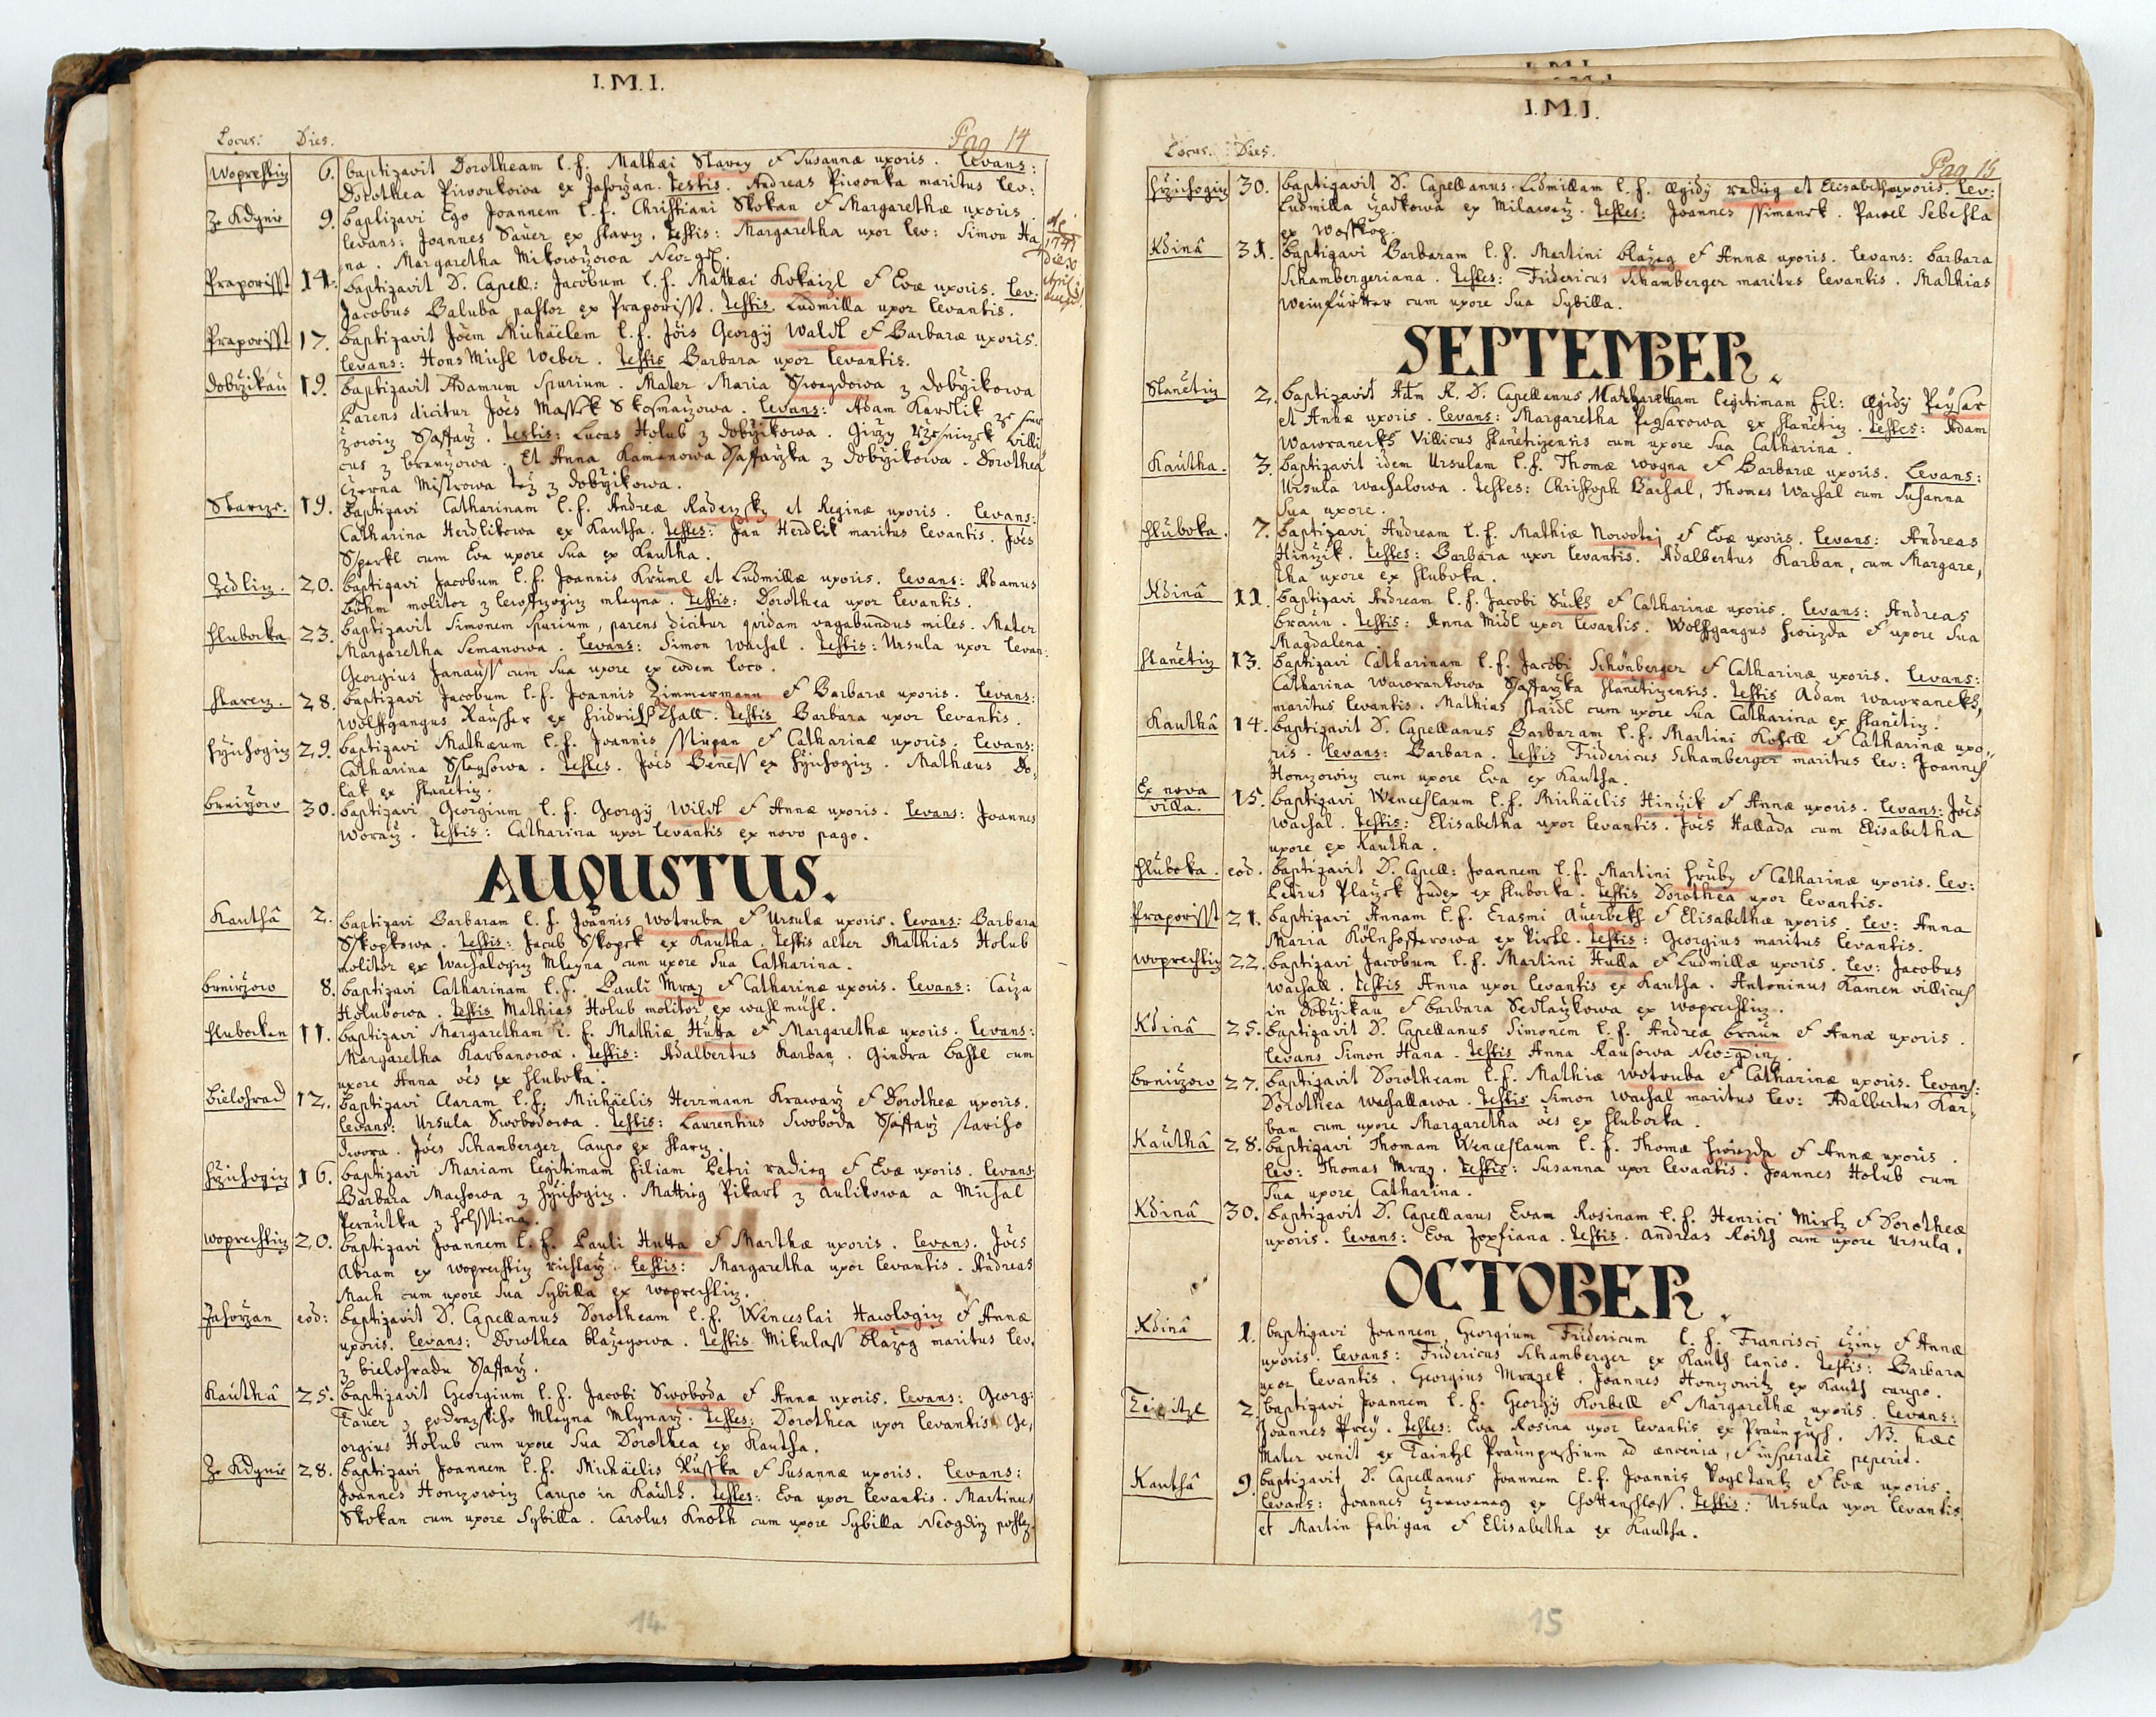 I.M.I.
Locus: Dies. Pag 14
Woprechtiz 6. baptizavit Dorotheam l. f. Mathæi Slavey & Susannæ uxoris. Levans:
Dorothea Piwonkowa ex Zahorzan. Testis. Andreas Piwonka maritus lev:
Ze Kdynie 9. baptizavi Ego Joannem l. f. Christiani Skokan & Margarethæ uxoris.
levans: Joannes Sauer ex Starz. Testis: Margaretha uxor lev: Simon Ha,
na. Margaretha Mikowizowa Neog.
Praporisst 14. baptizavit D. Capell: Jacobum l. f. Mathæi Kokaizl & Evæ uxoris. lev:
Jacobus Baluba pastor ex Praporisst. Testis Ludmilla uxor levantis.
Praporisst 17. baptizavit Jõem Michäelem l. f. Jõis Georgÿ Waldl & Barbaræ uxoris.
levans: Hons Michl Weber. Testis Barbara uxor levantis.
Dobrzikau 19. baptizavit Adamum Spurium. Mater Maria z Dobrzikowa
Parens dicitur Jões Massek Skosnarzowa. levans: Adam Kardlik
zowiz Saffarz. Testis: Lucas Holub z Dobrzikowa. Girzy villi
cus z brnirzowa. Et Anna Kamenowa Saffarzka z Dobrzikowa. Dorothea
Czerna Mistrowa též z Dobrzikowa.
Starcze. 19. baptizavi Catharinam l. f. Andreæ Radeizsky et Reginæ uxoris. levans:
Catharina Herdlikowa ex Kautha. Testes: Jan Herdlik maritus levantis. Jões
Sperkl cum Eva uxore sua ex Kautha.
Zedliz. 20. baptizavi Jacobum l. f. Joannis Kruml et Ludmillæ uxoris. levans: Adamus
Böhm molitor z mleyna. Testis: Dorothea uxor levantis.
Hluboka 23. baptizavit Simonem spurium, parens dicitur quidam vagabundus miles. Mater
Margaretha Semanowa. levans: Simon Wachal. Testis: Ursula uxor levan:
Georgius Janauss cum sua uxore ex eodem loco.
Starcz. 28. baptizavi Jacobum l. f. Joannis Zimmermann & Barbaræ uxoris. levans:
Wolffgangus Rauscher ex Fridrichsthall. Testis Barbara uxor levantis.
Hrzichogiz 29. baptizavi Mathæum l. f. Joannis Ssupan & Catharinæ uxoris. levans:
Catharina Slaysowa. Testes. Jões Beness ex Hrzichogiz. Mathæus Do,
lak ex Slanetiz.
Brnirzow 30. baptizavi Georgium l. f. Georgÿ Wildl & Annæ uxoris. levans: Joannes
Woracz. Testis: Catharina uxor levantis ex novo pago.
AUGUSTUS.
Kauthâ 2. baptizavi Barbaram l. f. Joannis Wotruba & Ursulæ uxoris. levans: Barbara
Skopkowa. Testis: Jacub Skopek ex Kautha. Testis alter Mathias Holub
molitor ex Wachalogiz Mleyna cum uxore sua Catharina.
Brnirzow 8. baptizavi Catharinam l. f. Pauli Mraz & Catharinæ uxoris. levans: Caiza
Holubowa. Testis Mathias Holub molitor ex wachlmühl.
Hlubocken 11. baptizavi Margaretham l. f. Mathiæ Hutta & Margarethæ uxoris. levans:
Margaretha Karbanowa. Testis: Adalbertus Karban. Gindra Bastl cum
uxore Anna ões ex Hluboka.
Bielohrad 12. baptizavi Claram l. f. Michäelis Herrmann Krawarz & Dorotheæ uxoris.
levans: Ursula Swobodowa. Testis: Laurentius Swoboda Saffarz stariho
Dwora. Jões Schamberger Caupo ex Starcz.
Hrzichogiz 16. baptizavi Mariam legitimam filiam Petri radieg & Evæ uxoris. levans
Barbara Machowa z Hrzichogiz. Mattieg Pikart z aulikowa a Michal
Perautka z Holsstina.
Woprechtiz 20. baptizavi Joannem l. f. Pauli Hutta & Marthæ uxoris. levans. Jões
Abram ex Woprechtiz richtarz. Testis: Margaretha uxor levantis. Andreas
Mach cum uxore sua Sybilla ex woprechtiz.
Zahorzan eõd: baptizavit D. Capellanus Dorotheam l. f. Wenceslai Hawlogiz & Annæ
uxoris. levans: Dorothea Blazegowa. Testis Mikulass Blazeg maritus lev.
z bielohradu Saffarz.
Kauthâ 25. baptizavit Georgium l. f. Jacobi Swoboda & Annæ uxoris. levans: Georg:
Tauer z podrazskiho Mleyna Mlynarz. Testes: Dorothea uxor levantis Ge,
orgius Holub cum uxore sua Dorothea ex Kautha.
Ze Kdynie 28. baptizavi Joannem l. f. Michäelis Russka & Susannæ uxoris. levans:
Joannes Honzowiz Caupo in Kauth. Testes: Eva uxor levantis. Martinus
Skokan cum uxore Sybilla. Carolus Knoth cum uxore Sybilla Neogdin.
14
I.M.I.
Locus. Dies. Pag 15
Hrzichogiz 30. baptizavit D. Capellanus Ludmillam l. f. Ægidÿ radieg et Elisabethæ uxoris. lev:
Ludmilla Czadkowa ex Milawecz. Testes: Joannes Ssimanek. Pawel Sebesta
ex Woskog.
Kdinâ 31. baptizavi Barbaram l. f. Martini blažeg & Annæ uxoris. levans: barbara
Schambergeriana. Testes: Fridericus Schamberger maritus levantis. Mathias
Weinfurtter cum uxore sua Sybilla.
SEPTEMBER.
Slanetiz 2. baptizavit Adm R. D. Capellanus Margaretham legitimam fil: Ægidÿ Peysar
et Annæ uxoris. levans: Margaretha Pegsarowa ex Slanetiz. Testes: Adam
Wawraneck Villicus Slanetizensis cum uxore sua Catharina.
Kautha. 3. baptizavit idem Ursulam l. f. Thomæ Wogna & Barbaræ uxoris. Levans:
Ursula Wachalowa. Testes: Christoph Wachal, Thomas Wachal cum Susanna
sua uxore.
Hluboka. 7. baptizavi Andream l. f. Mathiæ Nowotni & Evæ uxoris. levans: Andreas
Hinzik. Testes: Barbara uxor levantis. Adalbertus Karban, cum Margare,
tha uxore ex Hluboka.
Kdinâ 11. baptizavi Andream l. f. Jacobi Sucks & Catharinæ uxoris. levans: Andreas
Braun. Testis: Anna Midl uxor levantis. Wolffgangus Hwizda & uxore sua
Magdalena.
Slanetiz 13. baptizavi Catharinam l. f. Jacobi Schönberger & Catharinæ uxoris. levans:
Catharina Wawrankowa Saffarzka Slanetizensis. Testis Adam Wawraneck,
maritus levantis. Mathias Staidl cum uxore sua Catharina ex Slanetiz.
Kauthâ 14. baptizavit D. Capellanus Barbaram l. f. Martini Kohell & Catharinæ uxo,
ris. levans: Barbara. Testis Fridericus Schamberger maritus lev: Joannes
Honzowiz cum uxore Eva ex Kautha.
Ex nova
villa. 15. baptizavi Wenceslaum l. f. Michäelis Hinzik & Annæ uxoris. levans: Jões
Wachal. Testis: Elisabetha uxor levantis. Jões Hallada cum Elisabetha
uxore ex Kautha.
Hluboka. eõd. baptizavit D. Capell: Joannem l. f. Martini Hruby & Catharinæ uxoris. lev:
Petrus Plaizek Judex ex Hluboka. Testis Dorothea uxor levantis.
Praporisst 21. baptizavi Annam l. f. Erasmi Auerbeck & Elisabethæ uxoris. lev: Anna
Maria Kölnhofferowa ex Pirkl. Testis: Georgius maritus levantis.
Woprechtiz 22. baptizavi Jacobum l. f. Martini Hulla & Ludmillæ uxoris. lev: Jacobus
Wachall. Testis Anna uxor levantis ex Kautha. Antoninus Kamen villicus
in Dobrzikau & Barbara Sedlaczkowa ex Woprechtiz.
Kdinâ 25. baptizavit D. Capellanus Simonem l. f. Andreæ Braun & Annæ uxoris.
levans Simon Hana. Testis Anna Rausowa Neo-gdin.
Brnirzow 27. baptizavit Dorotheam l. f. Mathiæ Wotruba & Catharinæ uxoris. levans:
Dorothea Wachallowa. Testis Simon Wachal maritus lev: Adalbertus Kar,
ban cum uxore Margaretha ões ex Hluboka.
Kauthâ 28. baptizavi Thomam Wenceslaum l. f. Thomæ Hwizda & Annæ uxoris.
lev: Thomas Mraz. Testis: Susanna uxor levantis. Joannes Holub cum
sua uxore Catharina.
Kdinâ 30. baptizavit D. Capellanus Evam Rosinam l. f. Henrici Mirtz & Dorotheæ
uxoris. levans: Eva Jopfiana. Testis. Andreas Roith cum uxore Ursula.
OCTOBER.
Kdinâ 1. baptizavi Joannem, Georgium Fridericum l. f. Francisci Cziny & Annæ
uxoris. levans: Fridericus Schamberger ex Kauth lanio. Testis: Barbara
uxor levantis. Georgius Mrazek. Joannes Honzowitz ex Kauth caupo.
2. baptizavi Joannem l. f. Georgÿ Korbell & Margarethæ uxoris. levans:
Joannes Prey. Testes: Eva Rosina uxor levantis ex Praunpusch. NB. hæc
Mater venit ex Taintzl Praunpuschium ad æncænia, & insperatè peperit.
Kauthâ 9. baptizavit D. Capellanus Joannem l. f. Joannis Vogltantz & Evæ uxoris.
levans: Joannes Czerweneg ex Chottenschloss. Testis: Ursula uxor levantis
et Martin Fabigan & Elisabetha ex Kautha.
15